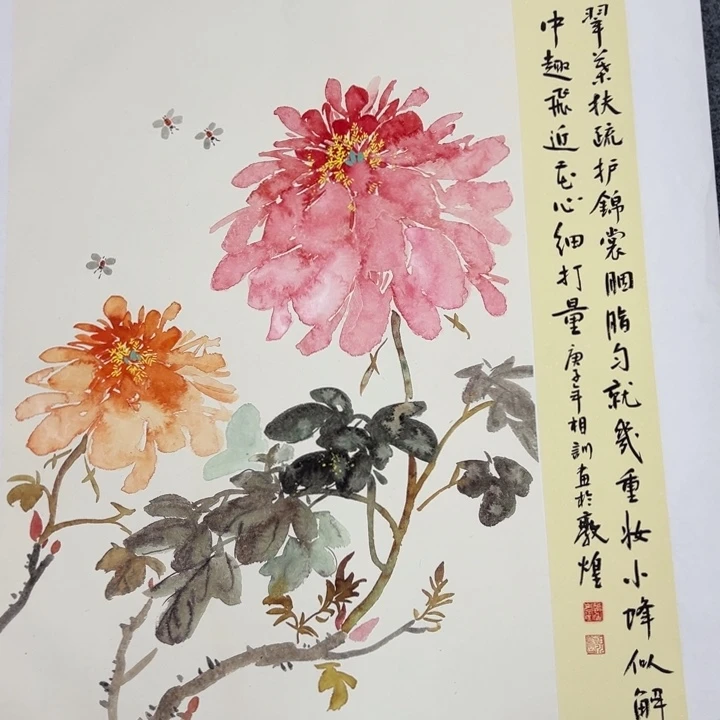 翠葉扶疏护錦裳胭脂匀就幾重妝小蜂似解
中趣飛近花心细打量
庚子年相訓画於敦煌